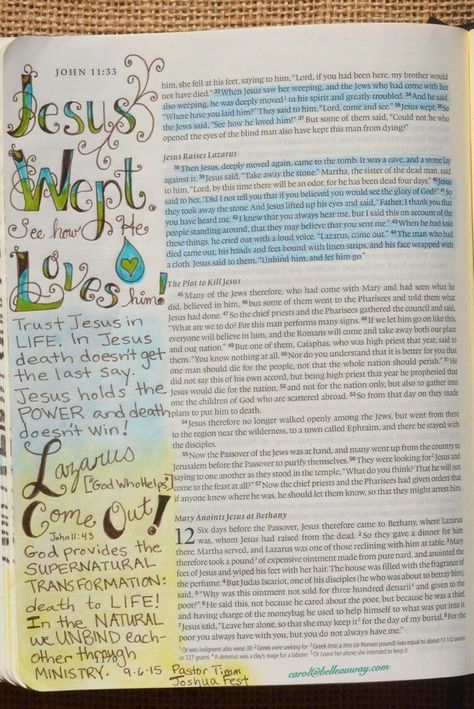 JOHN 11:33
Jesus
Wept.
See how He
Loves him!
Trust Jesus in
LIFE. In Jesus
death doesn't get
the last say.
Jesus holds the
POWER and death
doesn't win!
Lazarus
["God Who Helps"]
Come Out!
John 11:43
God provides the
SUPERNATURAL
TRANSFORMATION:
death to LIFE!
In the NATURAL
we UNBIND each-
other through
MINISTRY. 9-6-15 Pastor Timm
Joshua Fest
him, she fell at his feet, saying to him, "Lord, if you had been here, my brother would
not have died." 33 When Jesus saw her weeping, and the Jews who had come with her
also weeping, he was deeply moved1 in his spirit and greatly troubled. 34 And he said,
"Where have you laid him?" They said to him, "Lord, come and see." 35 Jesus wept. 36 So
the Jews said, "See how he loved him!" 37 But some of them said, "Could not he who
opened the eyes of the blind man also have kept this man from dying?"
Jesus Raises Lazarus
38 Then Jesus, deeply moved again, came to the tomb. It was a cave, and a stone lay
against it. 39 Jesus said, "Take away the stone." Martha, the sister of the dead man, said
to him, "Lord, by this time there will be an odor, for he has been dead four days." 40 Jesus
said to her, "Did I not tell you that if you believed you would see the glory of God?" 41 So
they took away the stone. And Jesus lifted up his eyes and said, "Father, I thank you that
you have heard me. 42 I knew that you always hear me, but I said this on account of the
people standing around, that they may believe that you sent me." 43 When he had said
these things, he cried out with a loud voice, "Lazarus, come out." 44 The man who had
died came out, his hands and feet bound with linen strips, and his face wrapped with
a cloth. Jesus said to them, "Unbind him, and let him go."
The Plot to Kill Jesus
45 Many of the Jews therefore, who had come with Mary and had seen what he
did, believed in him, 46 but some of them went to the Pharisees and told them what
Jesus had done. 47 So the chief priests and the Pharisees gathered the council and said,
"What are we to do? For this man performs many signs. 48 If we let him go on like this,
everyone will believe in him, and the Romans will come and take away both our place
and our nation." 49 But one of them, Caiaphas, who was high priest that year, said to
them, "You know nothing at all. 50 Nor do you understand that it is better for you that
one man should die for the people, not that the whole nation should perish." 51 He
did not say this of his own accord, but being high priest that year he prophesied that
Jesus would die for the nation, 52 and not for the nation only, but also to gather into
one the children of God who are scattered abroad. 53 So from that day on they made
plans to put him to death.
54 Jesus therefore no longer walked openly among the Jews, but went from there
to the region near the wilderness, to a town called Ephraim, and there he stayed with
the disciples.
55 Now the Passover of the Jews was at hand, and many went up from the country to
Jerusalem before the Passover to purify themselves. 56 They were looking for2 Jesus and
saying to one another as they stood in the temple, "What do you think? That he will not
come to the feast at all?" 57 Now the chief priests and the Pharisees had given orders that
if anyone knew where he was, he should let them know, so that they might arrest him.
Mary Anoints Jesus at Bethany
12 Six days before the Passover, Jesus therefore came to Bethany, where Lazarus
was, whom Jesus had raised from the dead. 2 So they gave a dinner for him
there. Martha served, and Lazarus was one of those reclining with him at table. 3 Mary
therefore took a pound3 of expensive ointment made from pure nard, and anointed the
feet of Jesus and wiped his feet with her hair. The house was filled with the fragrance of
the perfume. 4 But Judas Iscariot, one of his disciples (he who was about to betray him),
said, 5 "Why was this ointment not sold for three hundred denarii4 and given to the
poor?" 6 He said this, not because he cared about the poor, but because he was a thief,
and having charge of the moneybag he used to help himself to what was put into it.
7 Jesus said, "Leave her alone, so that she may keep it5 for the day of my burial. 8 For the
poor you always have with you, but you do not always have me."
1 Or was indignant; also verse 38 2 Greek were seeking for 3 Greek litra; a litra (or Roman pound) was equal to about 11 1/2 ounces
or 327 grams 4 A denarius was a day's wage for a laborer 5 Or Leave her alone; she intended to keep it
carol@belleauway.com